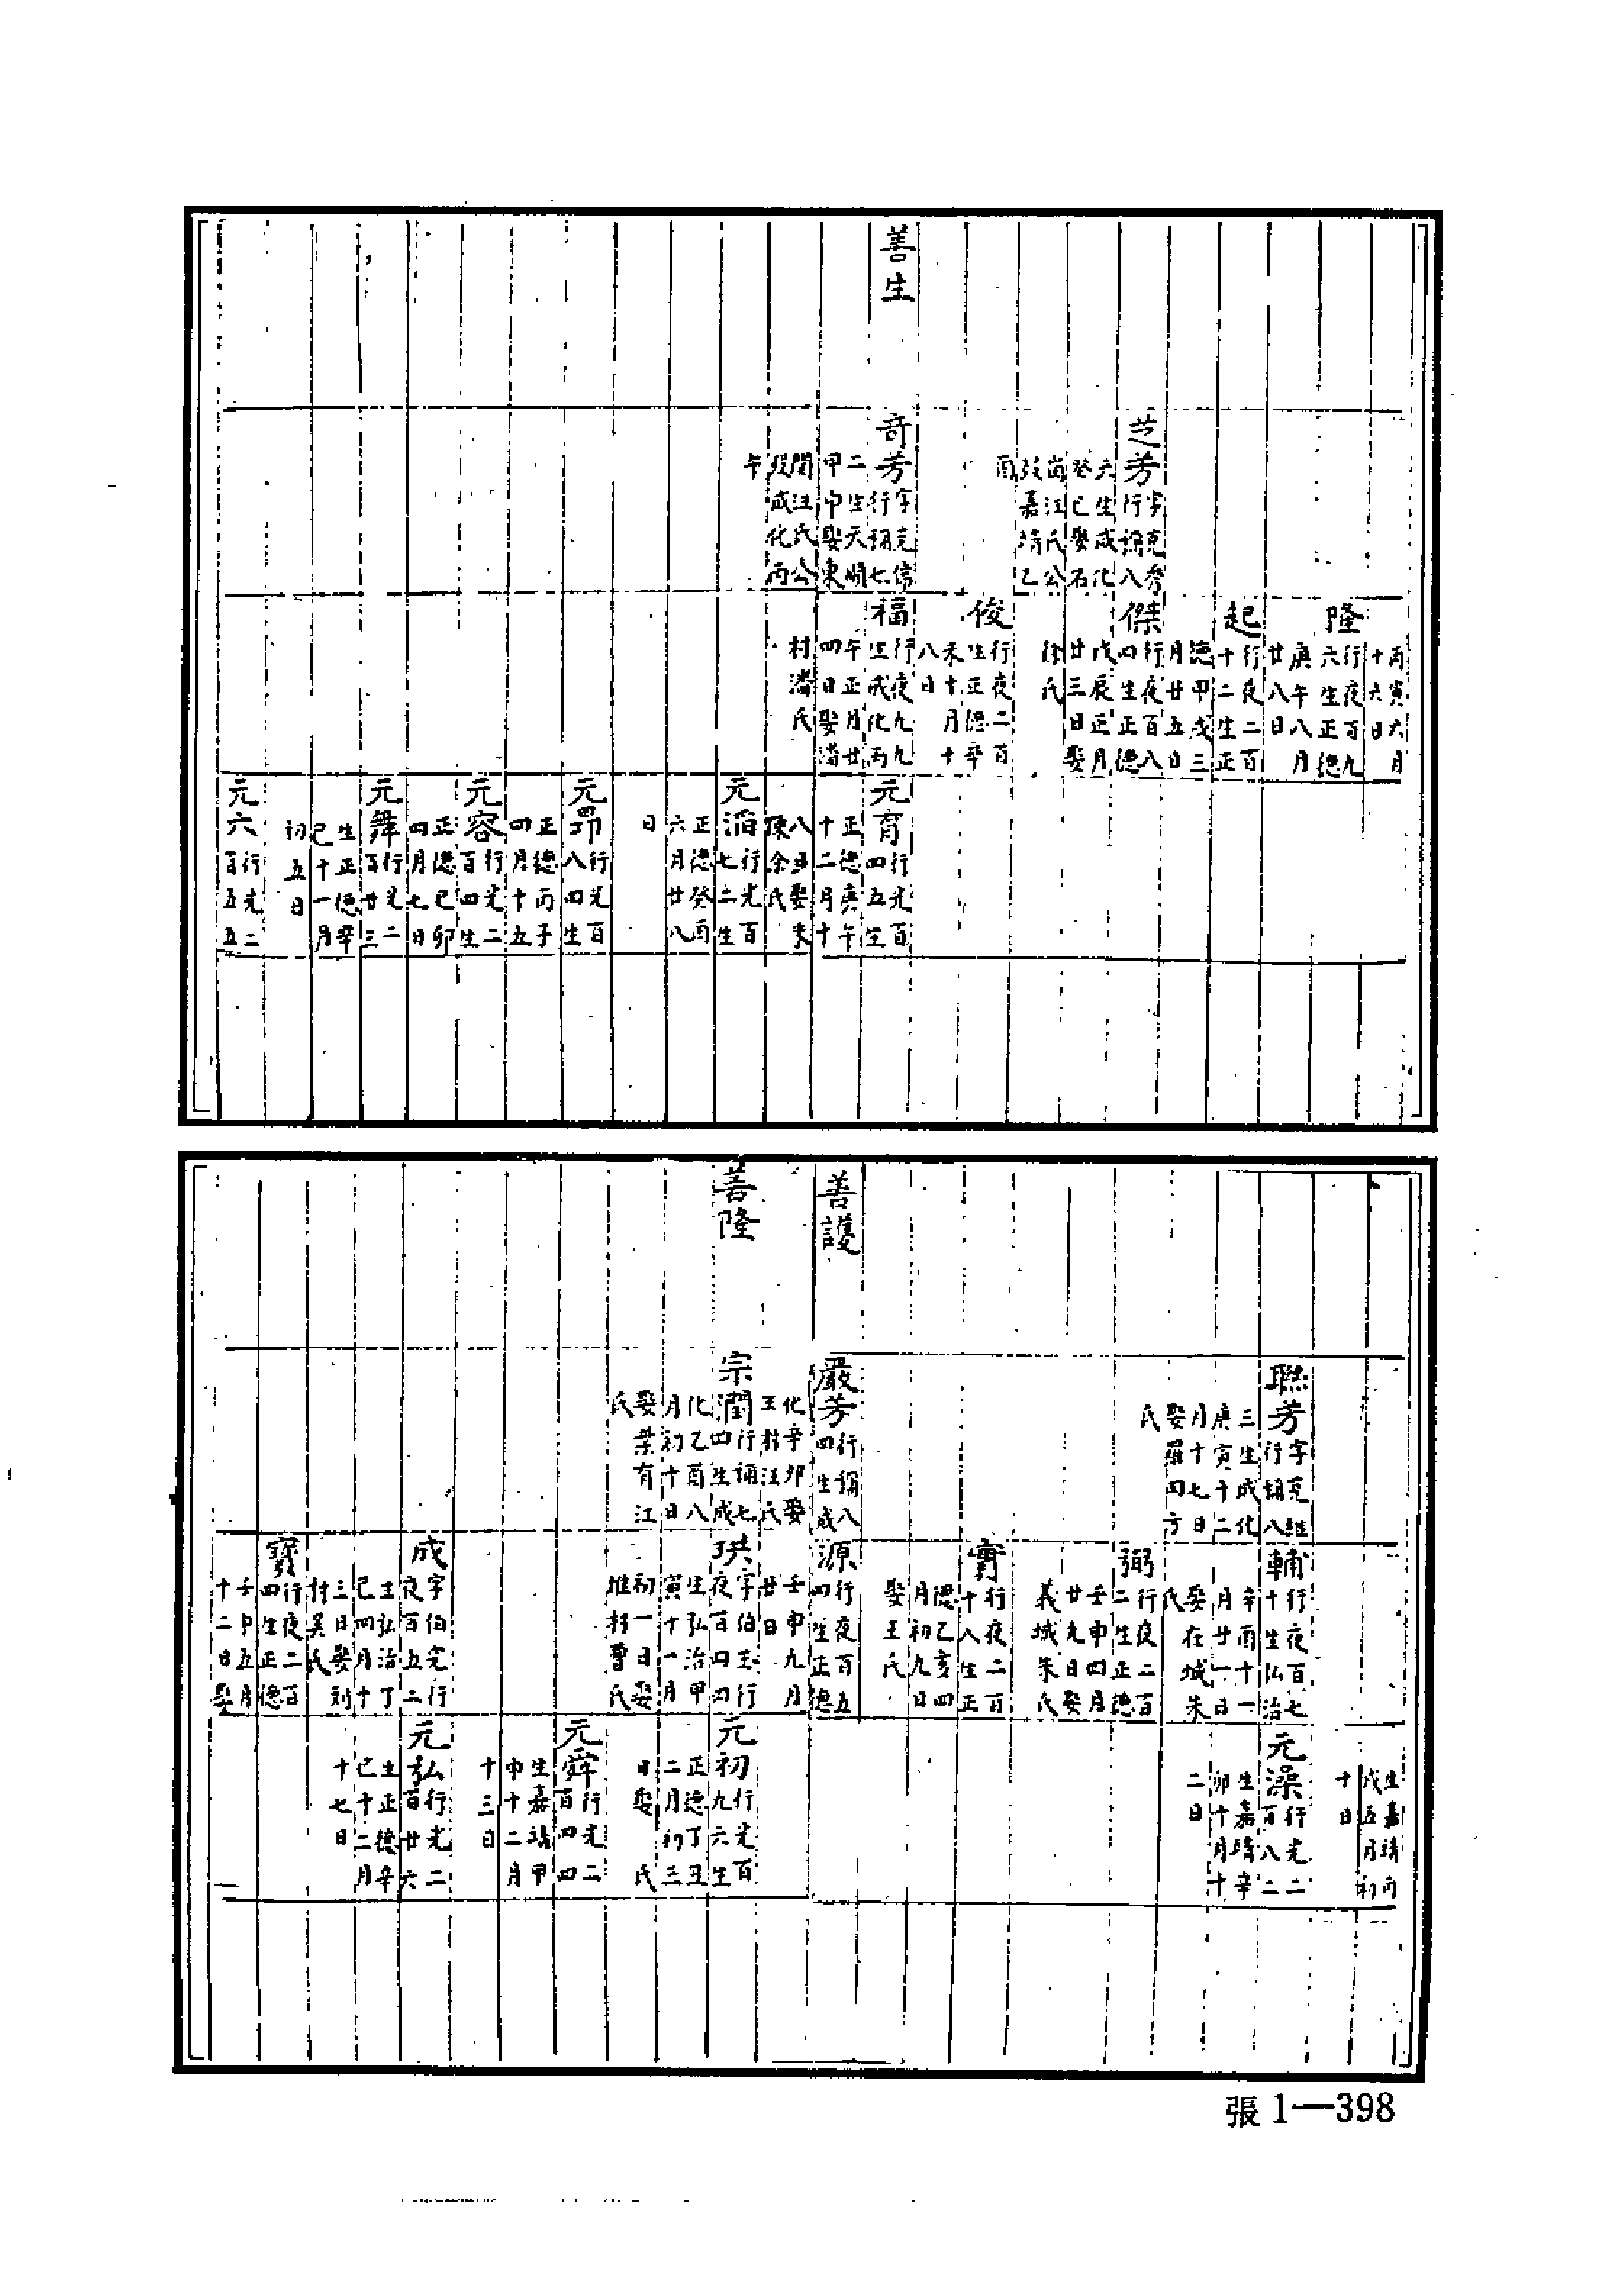 善生
芝芳
字克秀
行稱八
六生成化
癸巳娶石
崗汪氏公
歿嘉靖乙
酉
奇芳
字克信
行稱七
二生天順
甲申娶東
關汪氏公
歿成化丙
午
丙寅六月
十六日
隆
行夜百九
六生正德
庚午八月
廿八日
起
行夜二百
十二生正
德甲戌三
月廿五日
傑
行夜百八
四生正德
戊辰正月
廿三日娶
徐氏
俊
行夜二百
生正德辛
未十月十
八日
福
行夜九九
生成化丙
午正月廿
四日娶潘
村潘氏
元育
行光百
四五生
正德庚午
十二月十
八日娶朱
陳余氏
元滔
行光百
七二生
正德癸酉
六月廿八
日
元昂
行光百
八四生
正德丙子
四月十五
元容
行光二
百四生
正德己卯
四月七日
元舞
行光二
百廿三
生正德辛
巳十一月
初五日
元六
行光二
百五五
善護
善隆
聯芳
字克維
行稱八
三生成化
庚寅十二
月十七日
娶羅田方
氏
嚴芳
行稱八
四生成
化辛卯娶
王村汪氏
宗潤
行稱七
四生成
化乙酉八
月初十日
娶葉有江
氏
輔
行夜百七
十生弘治
辛酉十一
月廿一日
娶在城朱
氏
弼
行夜二百
二生正德
壬申四月
廿九日娶
義城朱氏
實
行夜二百
十八生正
德乙亥四
月初九日
娶王氏
源
行夜百五
四生正德
壬申九月
廿日
珙
字伯玉行
夜百四四
生弘治甲
寅十一月
初一日娶
堆村曹氏
成
字伯完行
夜百五二
生弘治丁
巳四月十
三日娶刘
村吴氏
寶
行夜二百
四生正德
壬申五月
十二日娶
生嘉靖丙
戌五月初
十日
元澡
行光二
百八二
生嘉靖辛
卯十月十
二日
元初
行光百
九六生
正德丁丑
二月初三
日娶　氏
元舜
行光二
百四四
生嘉靖甲
申十二月
十三日
元弘
行光二
百廿六
生正德辛
巳十二月
十七日
張1—398